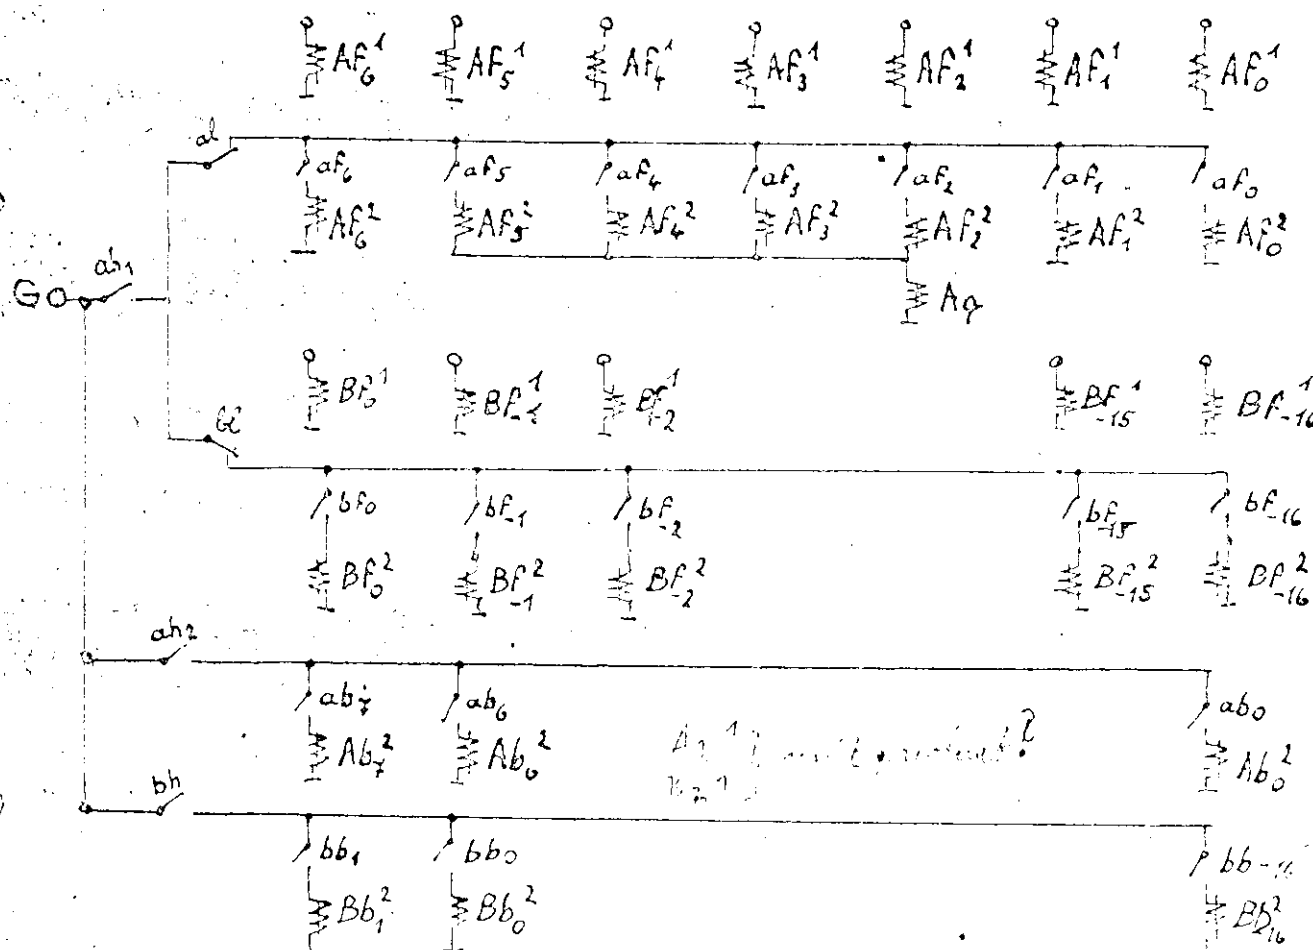 Af₆¹ Af₅¹ Af₄¹ Af₃¹ Af₂¹ Af₁¹ Af₀¹
al
af₆ af₅ af₄ af₃ af₂ af₁ af₀
Af₆² Af₅² Af₄² Af₃² Af₂² Af₁² Af₀²
ah₁
G Aq
Bf₀¹ Bf₋₁¹ Bf₋₂¹ Bf₋₁₅¹ Bf₋₁₆¹
bf₀ bf₋₁ bf₋₂ bf₋₁₅ bf₋₁₆
Bf₀² Bf₋₁² Bf₋₂² Bf₋₁₅² Bf₋₁₆²
ah₂
ab₇ ab₆ ab₀
Ab₇² Ab₆² ? Ab₀²
bh
bb₁ bb₀
Bb₁² Bb₀²